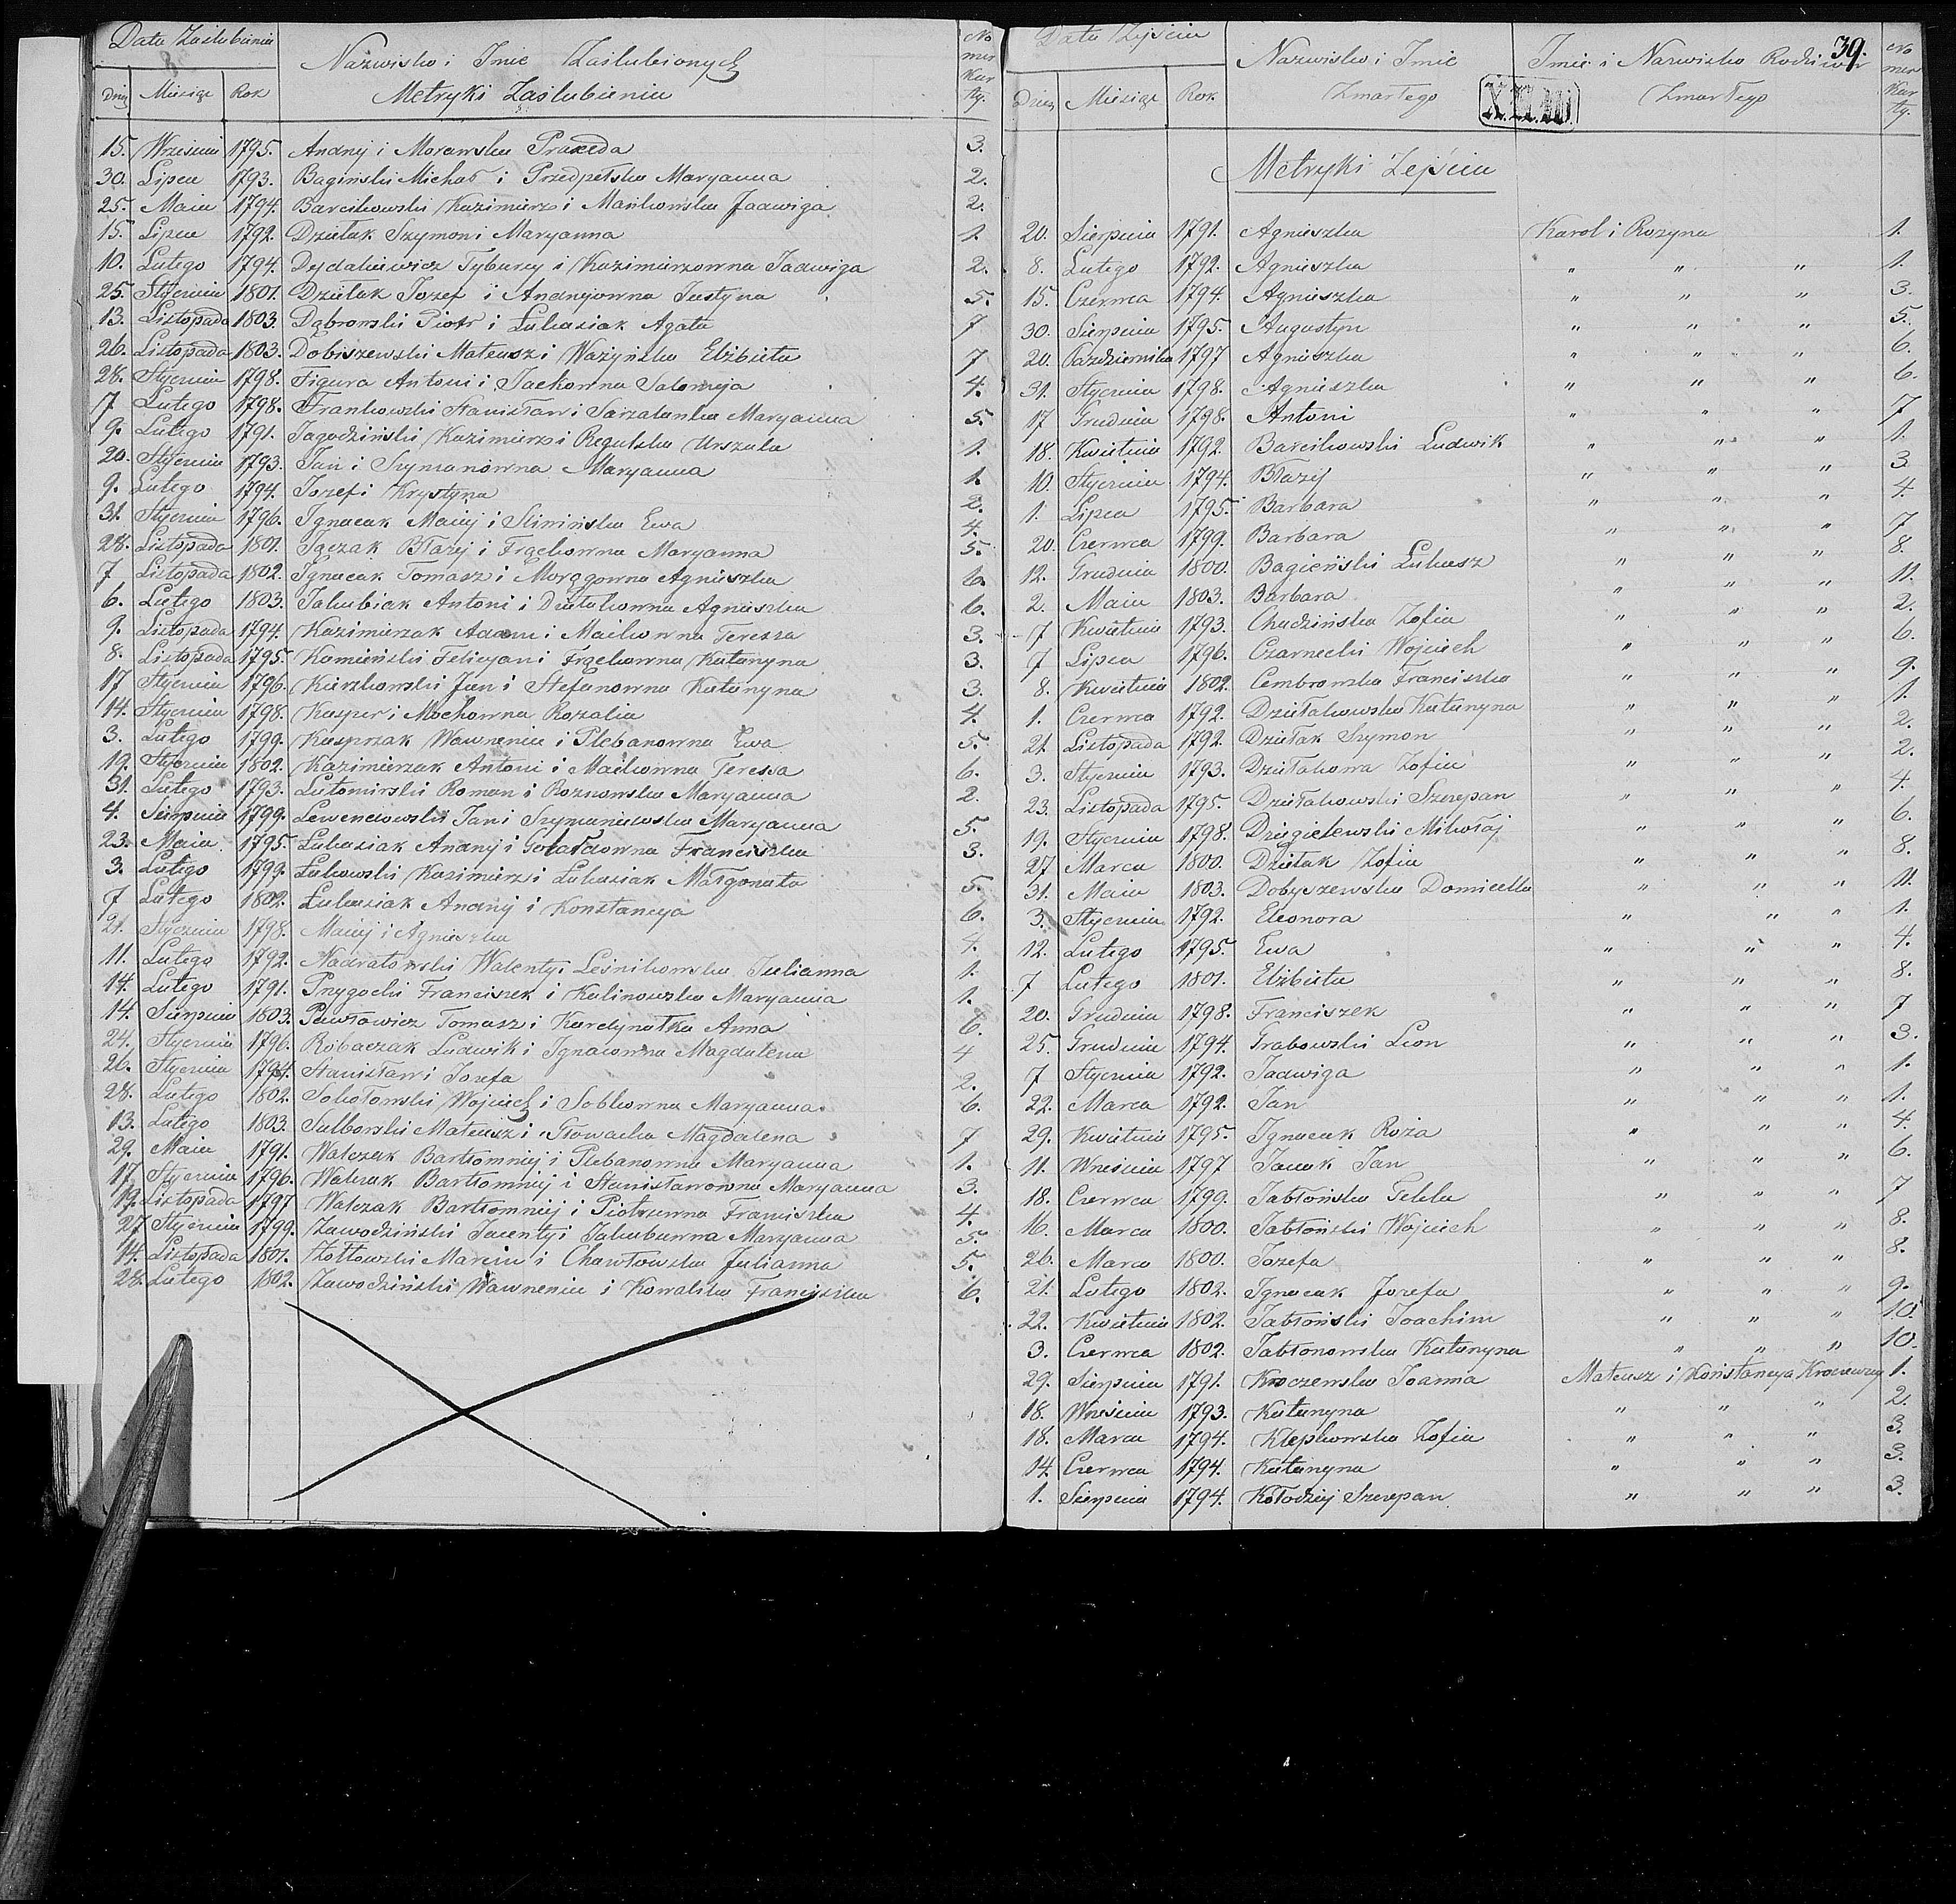 Data Zaślubienia
Nazwisko i Imie Zaślubionych
Numer Karty.
Dnia Miesiąc Rok
Metryki Zaślubienia
15. Wrześnii 1795. Andrzej i Morawska Praxeda 3.
30. Lipca 1793. Bagiński Michał i Przedpełska Maryanna 2.
25. Maia 1794. Barcikowski Kazimierz i Mańkowska Jadwiga 2.
15. Lipca 1792. Dziełak Szymon i Maryanna 1.
10. Lutego 1794. Tyburcy i Kazimierzowna Jadwiga 2.
25. Stycznia 1801. Dziełak Jozef i Andrzejowna Justyna 5.
13. Listopada 1803. Dąbrowski Piotr i Łukasiak Agata 7
26. Listopada 1803. Dobiszewski Mateusz i Ważyńska Elżbieta 7
28. Stycznia 1798. Figura Antoni i Jackowna Salomeja 4.
7 Lutego 1798. Frankowski Stanisław i Maryanna 5.
9. Lutego 1791. Jagodziński Kazimierz i Regulska Urszula 1.
20. Stycznia 1793. Jan i Szymanowna Maryanna 1.
9. Lutego 1794. Jozef i Krystyna 2.
31. Stycznia 1796. Ignacak Maciej i Ewa 4.
28. Listopada 1801. Jączak Błazej i Frąckowna Maryanna 5.
7 Listopada 1802. Ignacak Tomasz i Agnieszka 6.
6. Lutego 1803. Jakubiak Antoni i Dziełakowna Agnieszka 6.
9. Listopada 1794. Kazimierzak Adam i Maćkowna Teressa 3.
8. Listopada 1795. Kamieński Felicyan i Frąckowna Katarzyna 3.
17 Stycznia 1796. Kierzkowski Jan i Stefanowna Katarzyna 3.
14. Stycznia 1798. Kasper i Mockowna Rozalia 4.
3. Lutego 1799. Kasprzak Wawrzeniec i Plebanowna Ewa 5.
19. Stycznia 1802. Kazimierzak Antoni i Maćkowna Teressa 6.
31. Lutego 1793. Lutomirski Roman i Roznowska Maryanna 2.
4. Sierpnia 1799. Jan i Szymanowska Maryanna 5.
23. Maia 1795. Łukasiak Andrzej i Franciszka 3.
3. Lutego 1799. Łukowski Kazimierz i Łukasiak Małgorzata 5.
7 Lutego 1802. Łukasiak Andrzej i Konstancya 6.
21. Stycznia 1798. Maciej i Agnieszka 4.
11. Lutego 1792. Nadratowski Walenty i Leśnikowska Julianna 1.
14. Lutego 1791. Przygocki Franciszek i Kalinowska Maryanna 1.
14. Sierpnia 1803. Pawłowicz Tomasz i Anna 6.
24. Stycznia 1796. Robaczak Ludwik i Ignacowna Magdalena 4
26. Stycznia 1794. Stanisław i Jozefa 2.
28. Lutego 1802. Sokołowski Wojciech i Sobkowna Maryanna 6.
13. Lutego 1803. Sulborski Mateusz i Słowacka Magdalena 7
29. Maia 1791. Walczak Bartłomniej i Plebanowna Maryanna 1.
17. Stycznia 1796. Walczak Bartłomniej i Stanisławowna Maryanna 3.
19. Listopada 1797 Walczak Bartłomniej i Piotrowna Franciszka 4.
27 Stycznia 1799. Zawodziński Jacenty i Jakubowna Maryanna 5.
14. Listopada 1801. Żołtowski Marcin i Chawłowska Julianna 5.
28. Lutego 1802. Zawodziński Wawrzeniec i Kowalska Franciszka 6.
39.
Data Zejścia
Nazwisko i Imie Zmarłego
Imie i Nazwisko Rodzicow Zmarłego
Numer Karty.
Dnia Miesiąc Rok
Metryki Zejścia
20. Sierpnia 1791. Agnieszka Karol i Rozyna 1.
8. Lutego 1792. Agnieszka " " " 1.
15. Czerwca 1794. Agnieszka " " " 3.
30. Sierpnia 1795. Augustyn " " " 5.
20. Października 1797 Agnieszka " " " 6.
31. Stycznia 1798. Agnieszka " " " 6.
17 Grudnia 1798. Antoni " " " 7
18. Kwietnia 1792. Barcikowski Ludwik " " " 1.
10. Stycznia 1794. Błazy " " " 3.
1. Lipca 1795. Barbara " " " 4.
20. Czerwca 1799. Barbara " " " 7
12. Grudnia 1800. Bagieński Łukasz " " " 8.
2. Maia 1803. Barbara " " " 11.
7 Kwietnia 1793. Chudzińska Zofia " " " 2.
7 Lipca 1796. Czarnecki Wojciech " " " 6.
8. Kwietnia 1802. Cembrowska Franciszka " " " 9.
1. Czerwca 1792. Dziełakowska Katarzyna " " " 1.
21. Listopada 1792. Dziełak Szymon " " " 2.
3. Stycznia 1793. Dziełakowa Zofia " " " 2.
23. Listopada 1795. Dziełakowski Szczepan " " " 4.
19. Stycznia 1798. Dzięgielewski Mikołaj " " " 6.
27 Marca 1800. Dziełak Zofia " " " 8.
31. Maia 1803. Dobyszewska Domicella " " " 11.
3. Stycznia 1792. Eleonora " " " 1.
12. Lutego 1795. Ewa " " " 4.
7 Lutego 1801. Elżbieta " " " 8.
20. Grudnia 1798. Franciszek " " " 7
25. Grudnia 1794. Grabowski Leon " " " 3.
7 Stycznia 1792. Jadwiga " " " 1.
22. Marca 1792. Jan " " " 1.
29. Kwietnia 1795. Ignacak Roża " " " 4.
11. Wrześnii 1797 Jacak Jan " " " 6.
18. Czerwca 1799. Jabłońska Tekla " " " 7
16. Marca 1800. Jabłoński Wojciech " " " 8.
26. Marca 1800. Jozefa " " " 8.
21. Lutego 1802. Ignacak Jozefa " " " 9.
22. Kwietnia 1802. Jabłoński Joachim " " " 10.
3. Czerwca 1802. Jabłonowska Katarzyna " " " 10.
29. Sierpnia 1791. Kroczewska Joanna Mateusz i Konstancya 1.
18. Wrześnii 1793. Katarzyna " " " 2.
18. Marca 1794. Klepkowska Zofia " " " 3.
14. Czerwca 1794. Katarzyna " " " 3.
1. Sierpnia 1794. Kołodziej Szczepan " " " 3.